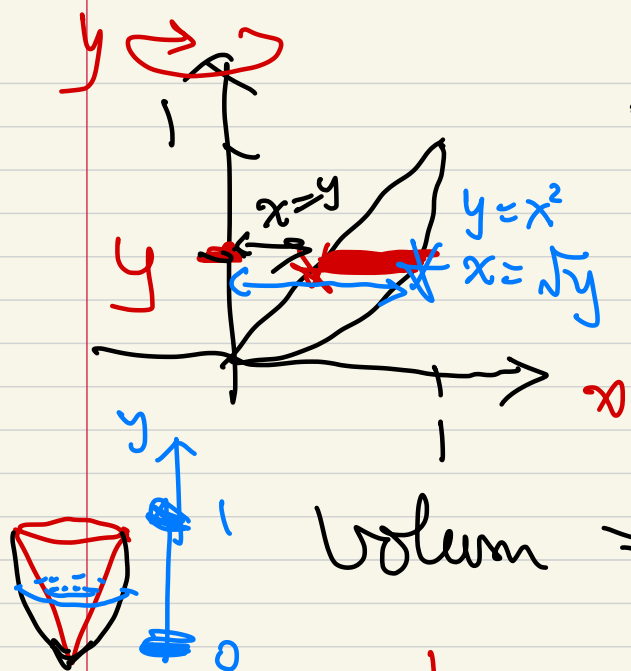 y
1
x=y
y = x²
y
x = √y
x
1
y
1
Volum
0